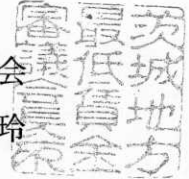 会
玲
茨城地方
最低賃金
審議